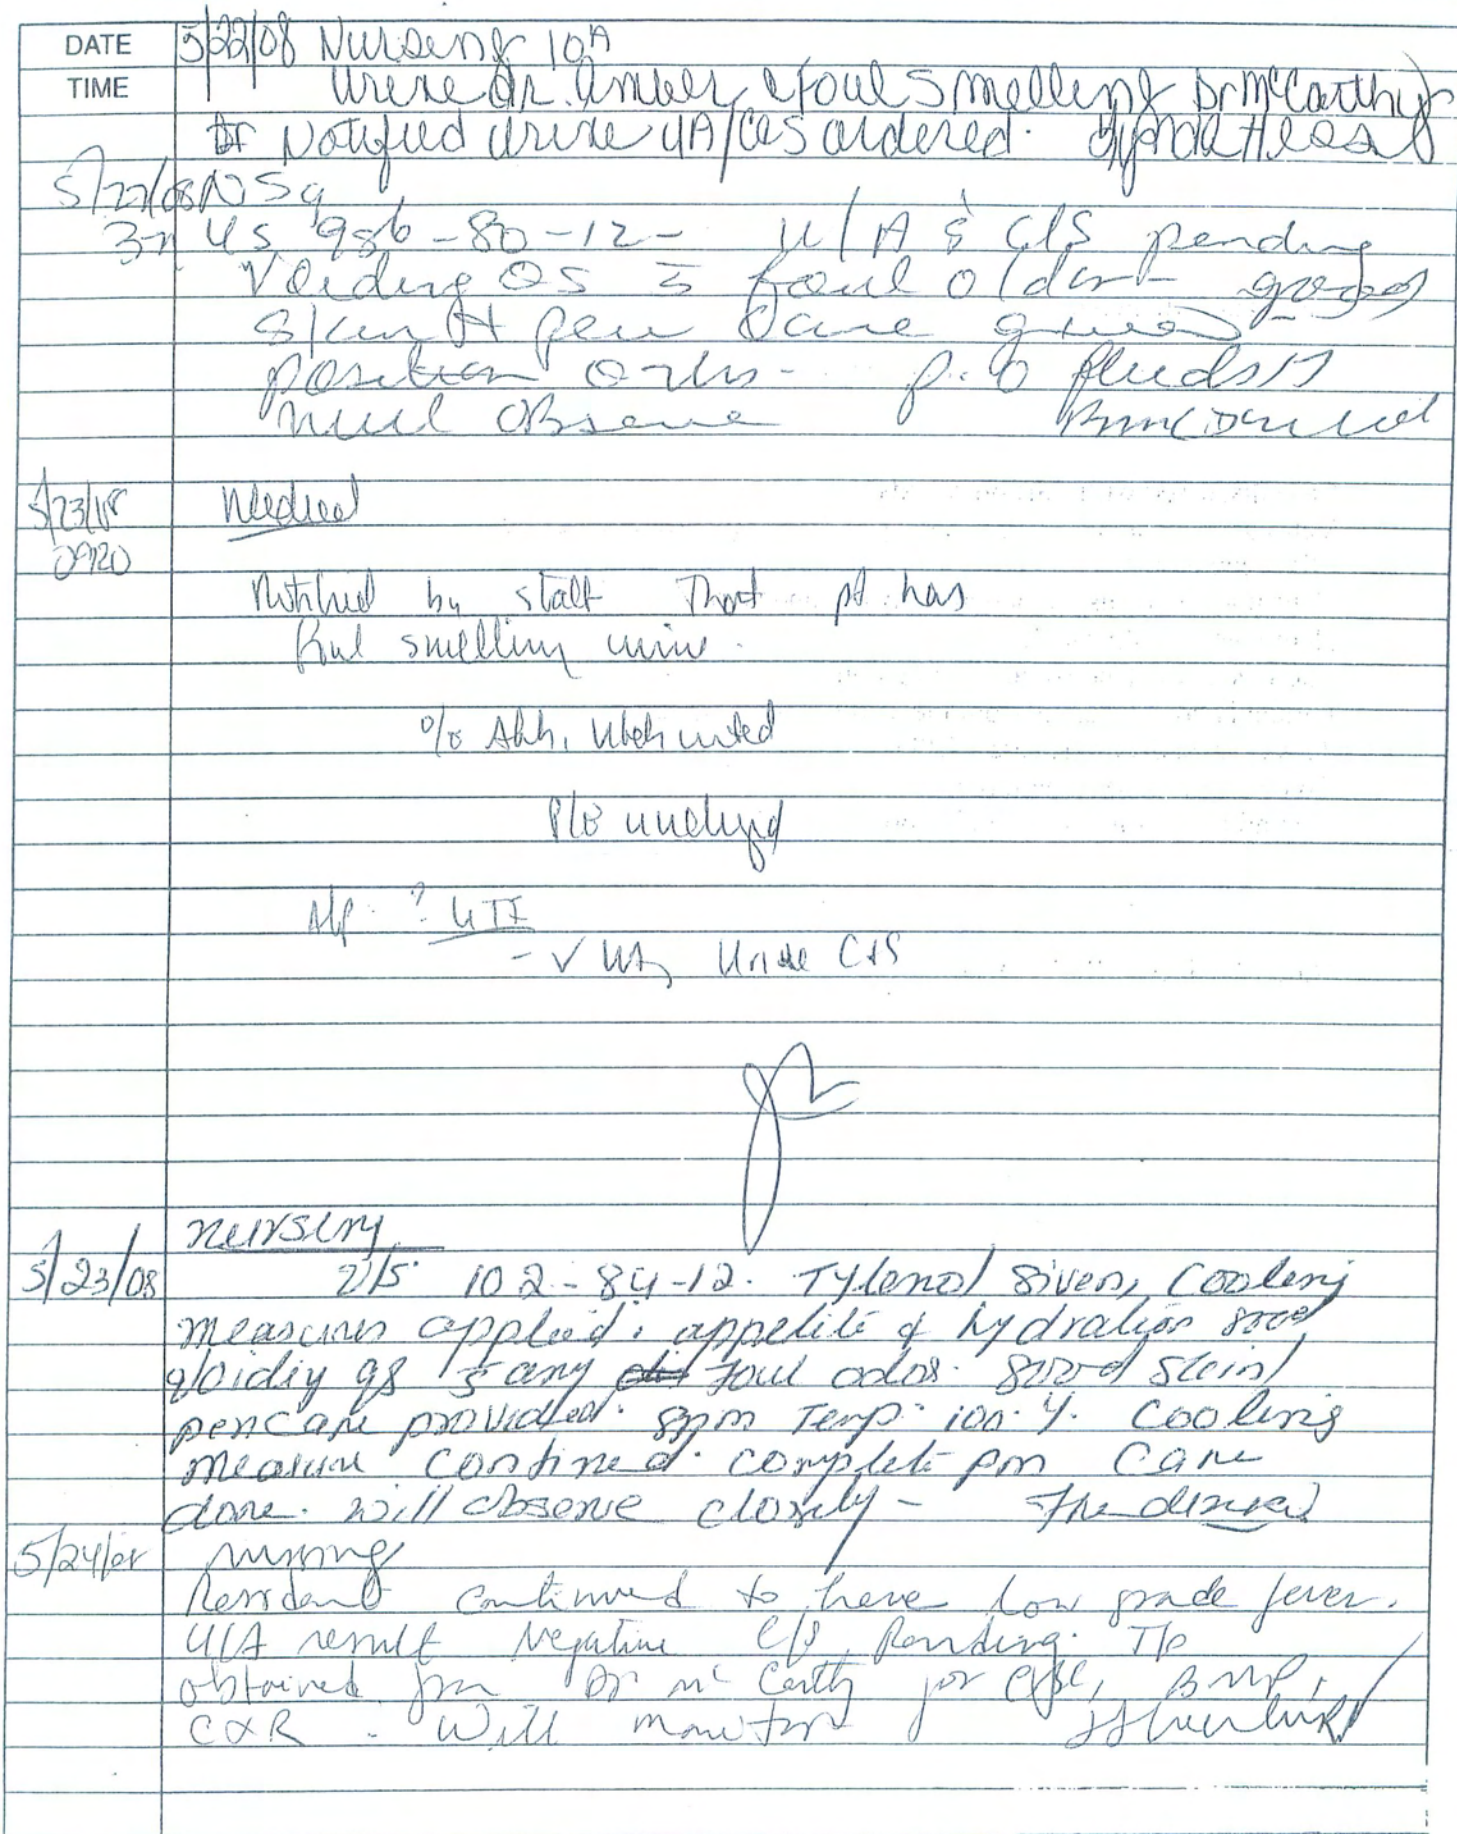 DATE 5/22/08 Nursing 10A
TIME Urine dk. amber, & foul smelling Dr McCarthy
Notified Urine UA/C&S ordered.
5/22/08 NSg
3-11 VS 986-80-12- U/A & C/S pending
Voiding QS s̄ foul odor good
skin & peri care given
position q2hr- p.o fluids
will observe
5/23/08 Medical
0920
Notified by staff that pt has
foul smelling urine.
O/E
P/E
A/P: ? UTI
- ✓ UA, Urine C&S
nursing
5/23/08 V/S 102-84-12. Tylenol given, cooling
measures applied. appetite & hydration good
voiding qs s̄ any foul odor. good skin/
pericare provided. 8pm Temp. 100.4. cooling
measure continued. complete pm care
done. will observe closely -
5/24/08 nursing
Resident continued to have low grade fever.
U/A result Negative C/S Pending. T/O
obtained from Dr McCarthy for CBC, BMP,
CXR. Will monitor